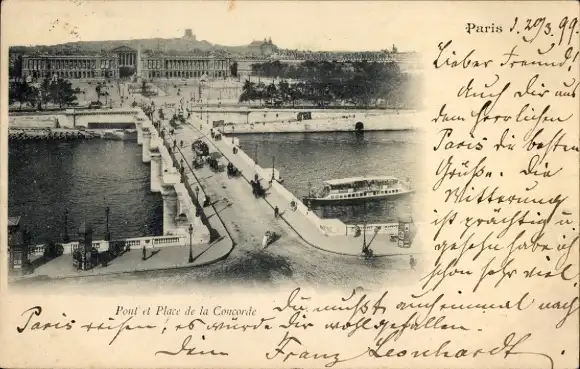 Paris, d. 20/3. 99.
Lieber Freund!
Auch Dir aus
dem herrlichen
Paris die besten
Grüße. Die
Witterung
ist prächtig u
gesehn habe ich
schon sehr viel.
Du mußt auch einmal nach
Paris reisen, es würde Dir wohlgefallen.
Dein Franz Leonhardt.
Pont et Place de la Concorde